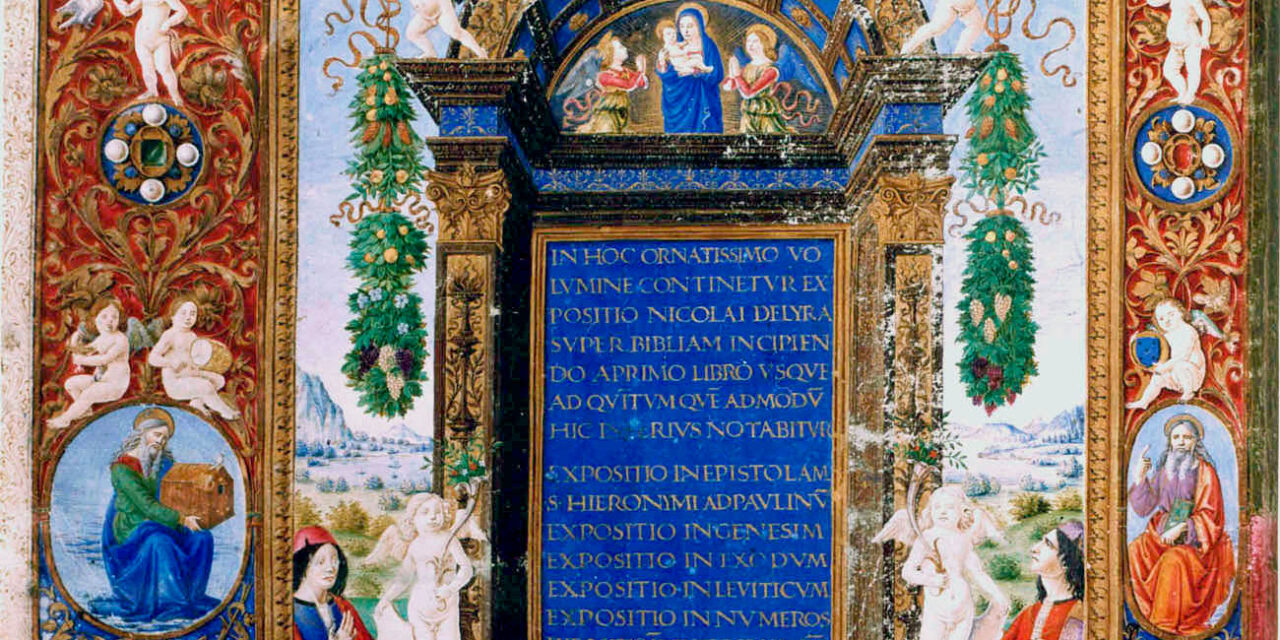 IN HOC ORNATISSIMO VO
LVMINE CONTINETVR EX
POSITIO NICOLAI DELYRA
SVPER BIBLIAM INCIPIEN
DO APRIMO LIBRŌ VSQVE
AD QVĪTVM QVĒ ADMODV̄
HIC NOTABITVR
EXPOSITIO INEPISTOLAM
S· HIERONYMI ADPAVLINV̄
EXPOSITIO INGENESIM
EXPOSITIO IN EXODVM
EXPOSITIO·IN LEVITICVM
EXPOSITIO IN NVMEROS